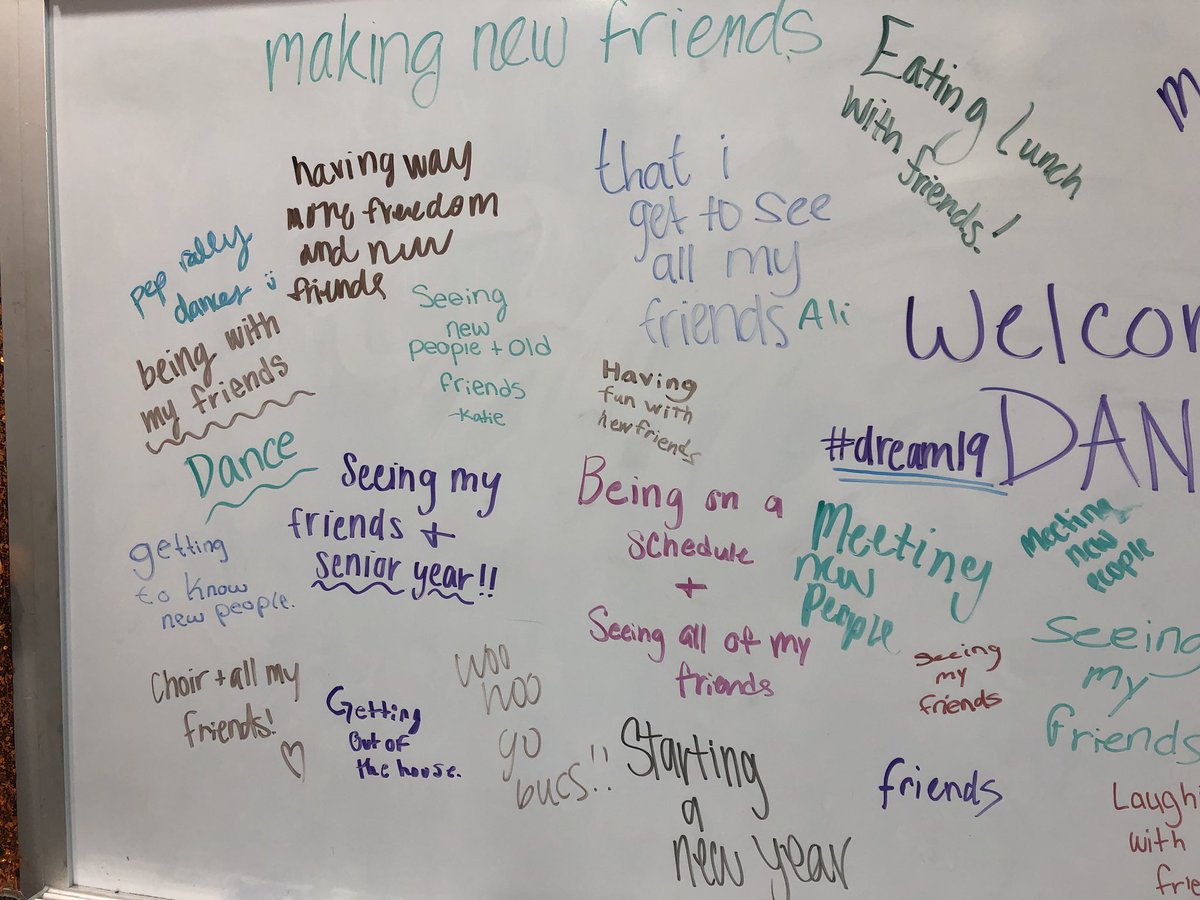 making new friends
Eating Lunch
with friends!
having way
more freedom
and new
friends
that i
get to see
all my
friends
Ali
pep rally
dances
being with
my friends
Seeing
new
people + Old
friends
-Katie
Having
fun with
new friends
Welcom
#dream19
DAN
Dance
Seeing my
friends +
senior year!!
Being on a
schedule
+
Seeing all of my
friends
Meeting
new
people
Meeting
new
people
getting
to know
new people.
Choir + all my
friends!
Getting
Out of
the house.
woo
hoo
go
bucs!!
Starting
a
new year
seeing
my
friends
Seeing
my
friends
friends
Laughi
with
frie